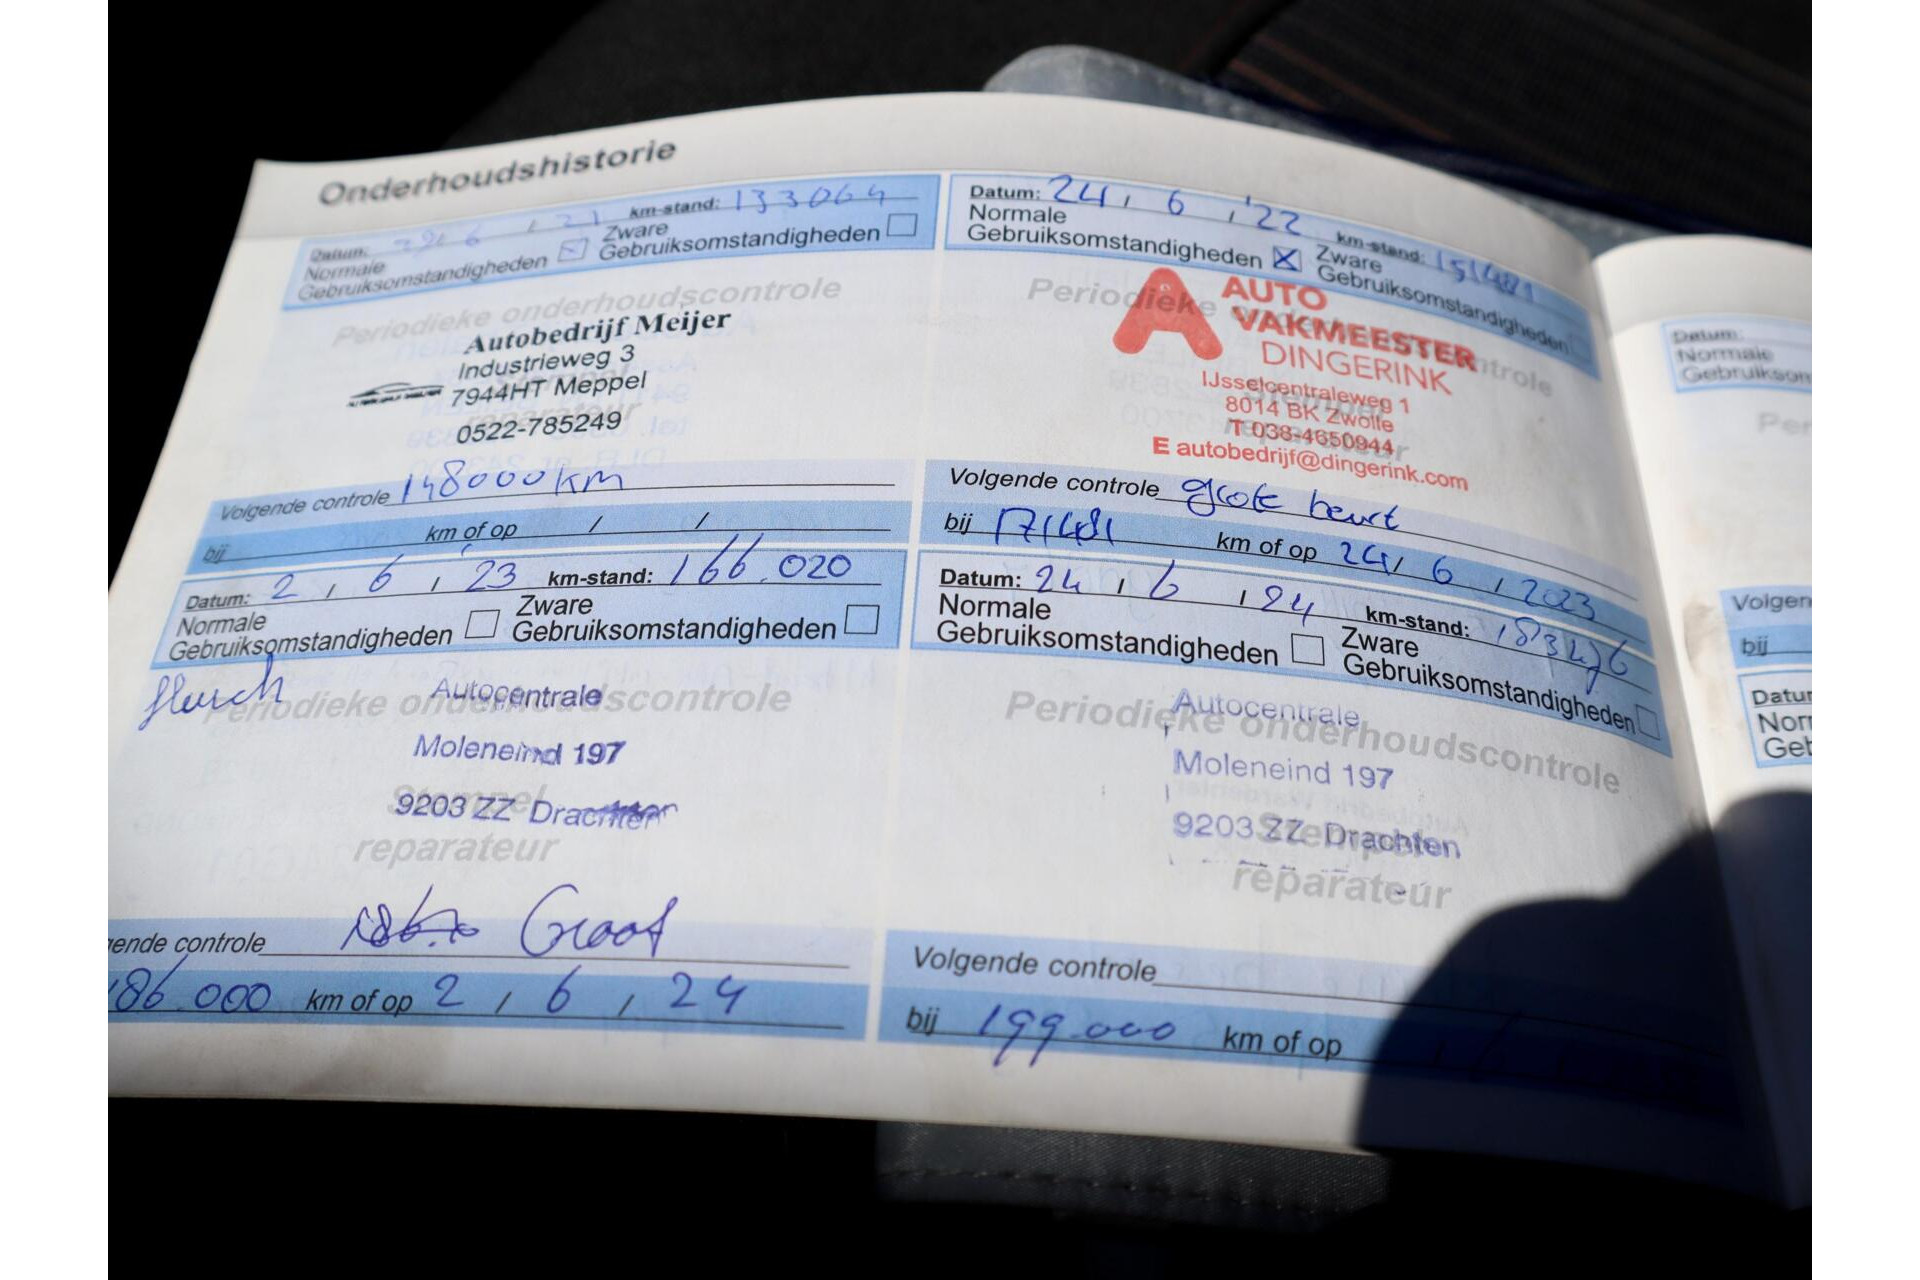 Onderhoudshistorie
Datum: 6 / 21 km-stand: 133064
Normale Gebruiksomstandigheden Zware Gebruiksomstandigheden
Periodieke onderhoudscontrole
Autobedrijf Meijer
Industrieweg 3
7944HT Meppel
0522-785249
Stempel
reparateur
Volgende controle 148000 km
bij km of op / /
Datum: 24 / 6 / '22 km-stand: 151481
Normale Gebruiksomstandigheden Zware Gebruiksomstandigheden
Periodieke onderhoudscontrole
AUTO
VAKMEESTER
DINGERINK
IJsselcentraleweg 1
8014 BK Zwolle
T 038-4650944
E autobedrijf@dingerink.com
Stempel
reparateur
Volgende controle grote beurt
bij 171481 km of op 24 / 6 / 2023
Datum: 2 / 6 / '23 km-stand: 166.020
Normale Gebruiksomstandigheden Zware Gebruiksomstandigheden
Periodieke onderhoudscontrole
Autocentrale
Moleneind 197
9203 ZZ Drachten
Stempel
reparateur
gende controle Groot
186.000 km of op 2 / 6 / 24
Datum: 24 / 6 / 24 km-stand:
Normale Gebruiksomstandigheden Zware Gebruiksomstandigheden
Periodieke onderhoudscontrole
Autocentrale
Moleneind 197
9203 ZZ Drachten
Stempel
reparateur
Volgende controle
bij 199.000 km of op
Datum:
Normale
Gebruikson
Per
Volgen
bij
Datur
Norr
Get